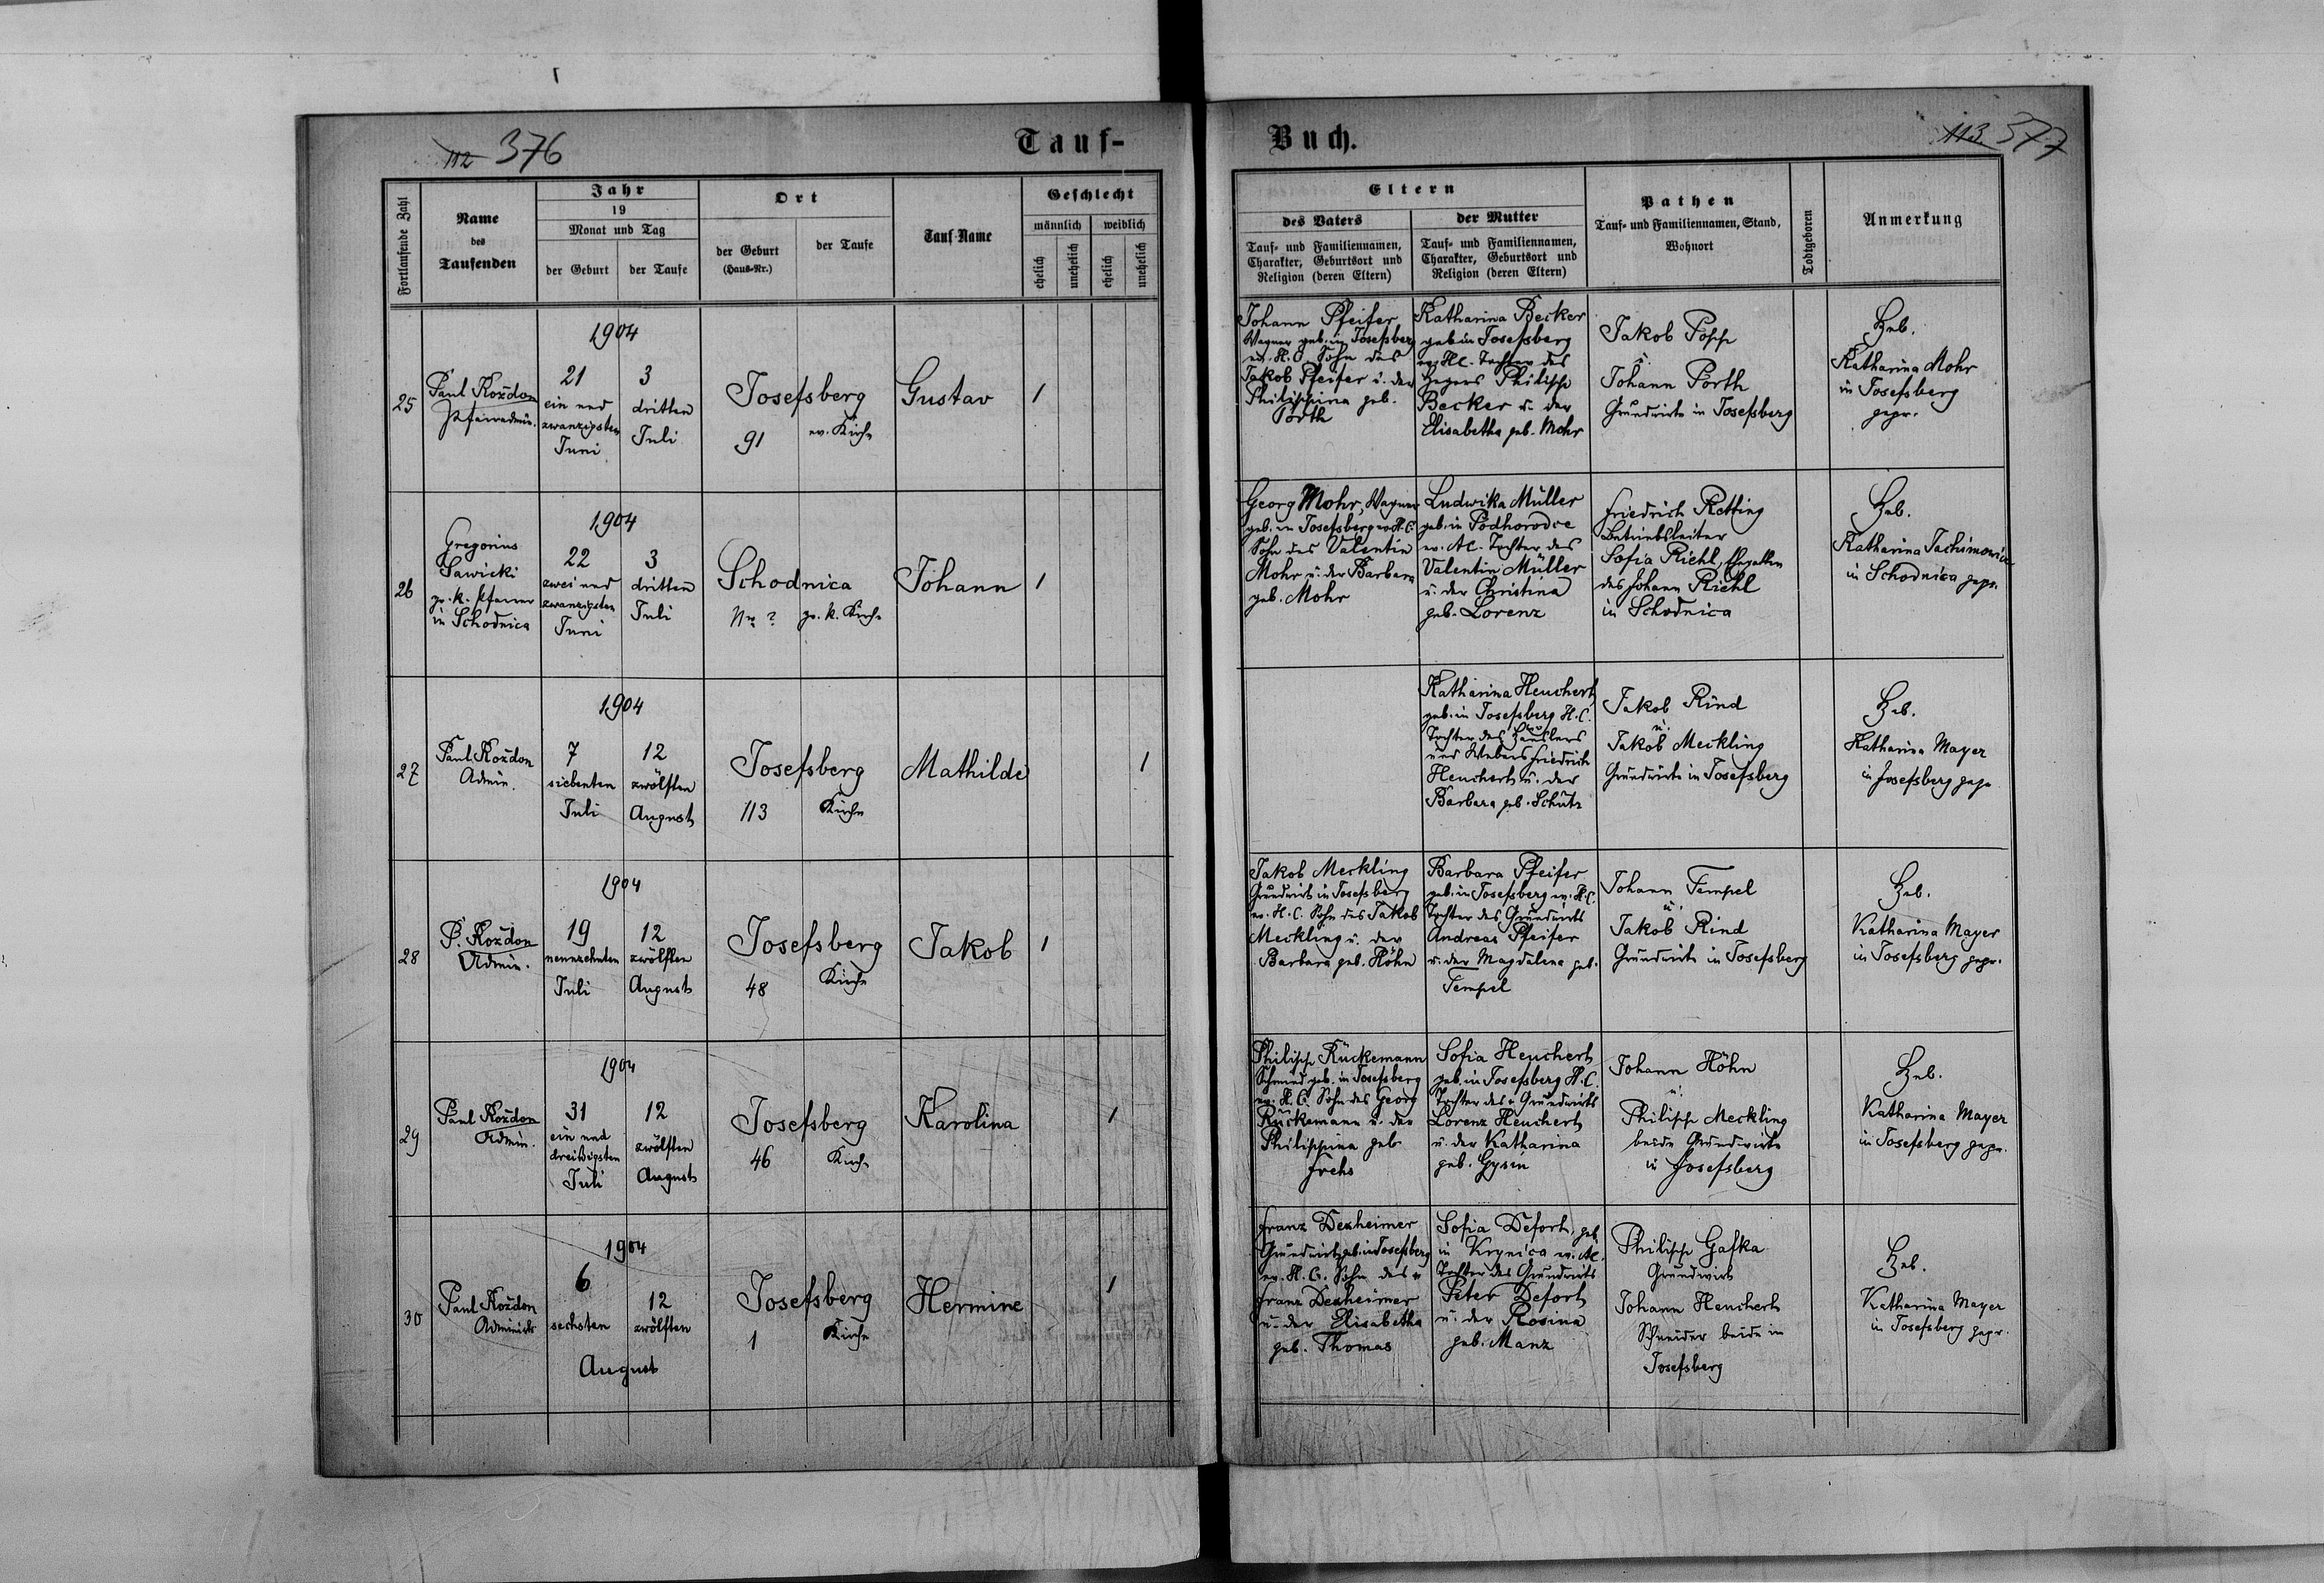 112 376
Tauf-
Fortlaufende Zahl
Name
des
Taufenden
Jahr
19
Monat und Tag
der Geburt
der Taufe
Ort
der Geburt
(Haus-Nr.)
der Taufe
Tauf-Name
Geschlecht
männlich
weiblich
ehelich
unehelich
ehelich
unehelich
25
Paul Kozdon
Pfarradmin.
1904
21
ein und
zwanzigsten
Juni
3
dritten
Juli
Josefsberg
91
ev. Kirche
Gustav
1
26
Gregorius
Sawicki
gr. k. Pfarrer
in Schodnica
1904
22
zwei und
zwanzigsten
Juni
3
dritten
Juli
Schodnica
Nr. ?
gr. k. Kirche
Johann
1
27
Paul Kozdon
Admin.
1904
7
siebenten
Juli
12
zwölften
August
Josefsberg
113
Kirche
Mathilde
1
28
P. Kozdon
Admin.
1904
19
neunzehnten
Juli
12
zwölften
August
Josefsberg
48
Kirche
Jakob
1
29
Paul Kozdon
Admin.
1904
31
ein und
dreißigsten
Juli
12
zwölften
August
Josefsberg
46
Kirche
Karolina
1
30
Paul Kozdon
1904
6
sechsten
12
zwölften
August
Josefsberg
1
Kirche
Hermine
1
Buch.
113 377
Eltern
des Vaters
Tauf- und Familiennamen,
Charakter, Geburtsort und
Religion (deren Eltern)
der Mutter
Tauf- und Familiennamen,
Charakter, Geburtsort und
Religion (deren Eltern)
Pathen
Tauf- und Familiennamen, Stand,
Wohnort
Todtgeboren
Anmerkung
Johann Pfeifer
Wagner geb. in Josefsberg
ev. H.C. Sohn des
Jakob Pfeifer u. der
Philippina geb.
Porth
Katharina Becker
geb in Josefsberg
ev. HC. Tochter des
Philipp
Becker u. der
Elisabetha geb. Mohr
Jakob Popp
u.
Johann Porth
Grundwirte in Josefsberg
Heb.
Katharina Mohr
in Josefsberg
gepr.
Georg Mohr, Wagner
geb. in Josefsberg ev. H.C.
Sohn des Valentin
Mohr u. der Barbara
geb. Mohr
Ludwika Müller
geb. in Podhorodce
ev. AC. Tochter des
Valentin Müller
u. der Christina
geb. Lorenz
Friedrich Retting
Betriebsleiter
Sofia Riehl, Ehegattin
des Johann Riehl
in Schodnica
Heb.
Katharina Jachimowicz
in Schodnica gepr.
Katharina Heuchert
geb. in Josefsberg H.C.
Tochter des Häuslers
und Webers Friedrich
Heuchert u. der
Barbara geb. Schütz
Jakob Rind
u.
Jakob Meckling
Grundwirte in Josefsberg
Heb.
Katharina Mayer
in Josefsberg gepr.
Jakob Meckling
Grundwirt in Josefsberg
ev. H.C. Sohn des Jakob
Meckling u. der
Barbara geb. Höhn
Barbara Pfeifer
geb. in Josefsberg ev. H.C.
Tochter des Grundwirts
Andreas Pfeifer
u. der Magdalena geb.
Tempel
Johann Tempel
u.
Jakob Rind
Grundwirte in Josefsberg
Heb.
Katharina Mayer
in Josefsberg gepr.
Philipp Rückemann
Schmied geb. in Josefsberg
ev. H.C. Sohn des Georg
Rückemann u. der
Philippina geb
Frehs
Sofia Heuchert
geb. in Josefsberg H.C.
Tochter des Grundwirts
Lorenz Heuchert
u. der Katharina
geb. Gysin
Johann Höhn
u.
Philipp Meckling
beide Grundwirte
in Josefsberg
Heb.
Katharina Mayer
in Josefsberg gepr.
Franz Dexheimer
Grundwirt geb. in Josefsberg
ev. H.C. Sohn des
Franz Dexheimer
u. der Elisabetha
geb. Thomas
Sofia Defort, geb
in Krynica ev. AC.
Tochter des Grundwirts
Peter Defort
u. der Rosina
geb. Manz
Philipp Gafka
Grundwirt
Johann Heuchert
Schneider beide in
Josefsberg
Heb.
Katharina Mayer
in Josefsberg gepr.